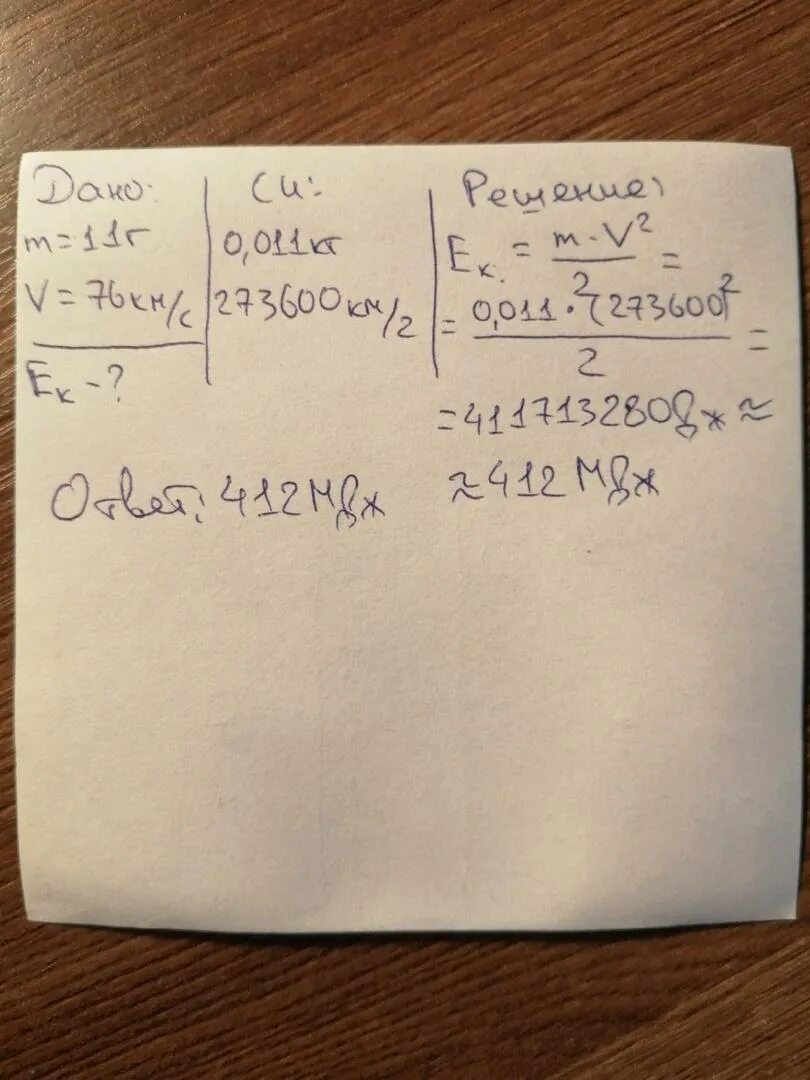 Дано:
m = 11г
V = 76 км/с
Eк - ?
Си:
0,011кг
273600 км/2
Решение:
Eк. = m · V² / 2 =
= 0,011 · (273600)² / 2 =
= 411713280 Дж ≈
≈ 412 МДж
Ответ: 412 МДж